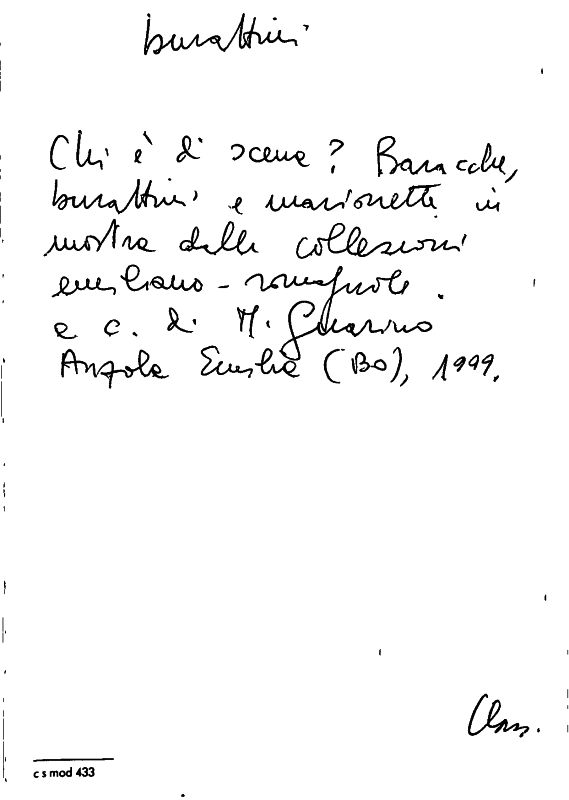 burattini
Chi è di scena? Baracche,
burattini e marionette in
mostra dalle collezioni
emiliano-romagnole.
a c. di M. Guarino
Anzola Emilia (BO), 1999.
Class.
c s mod 433